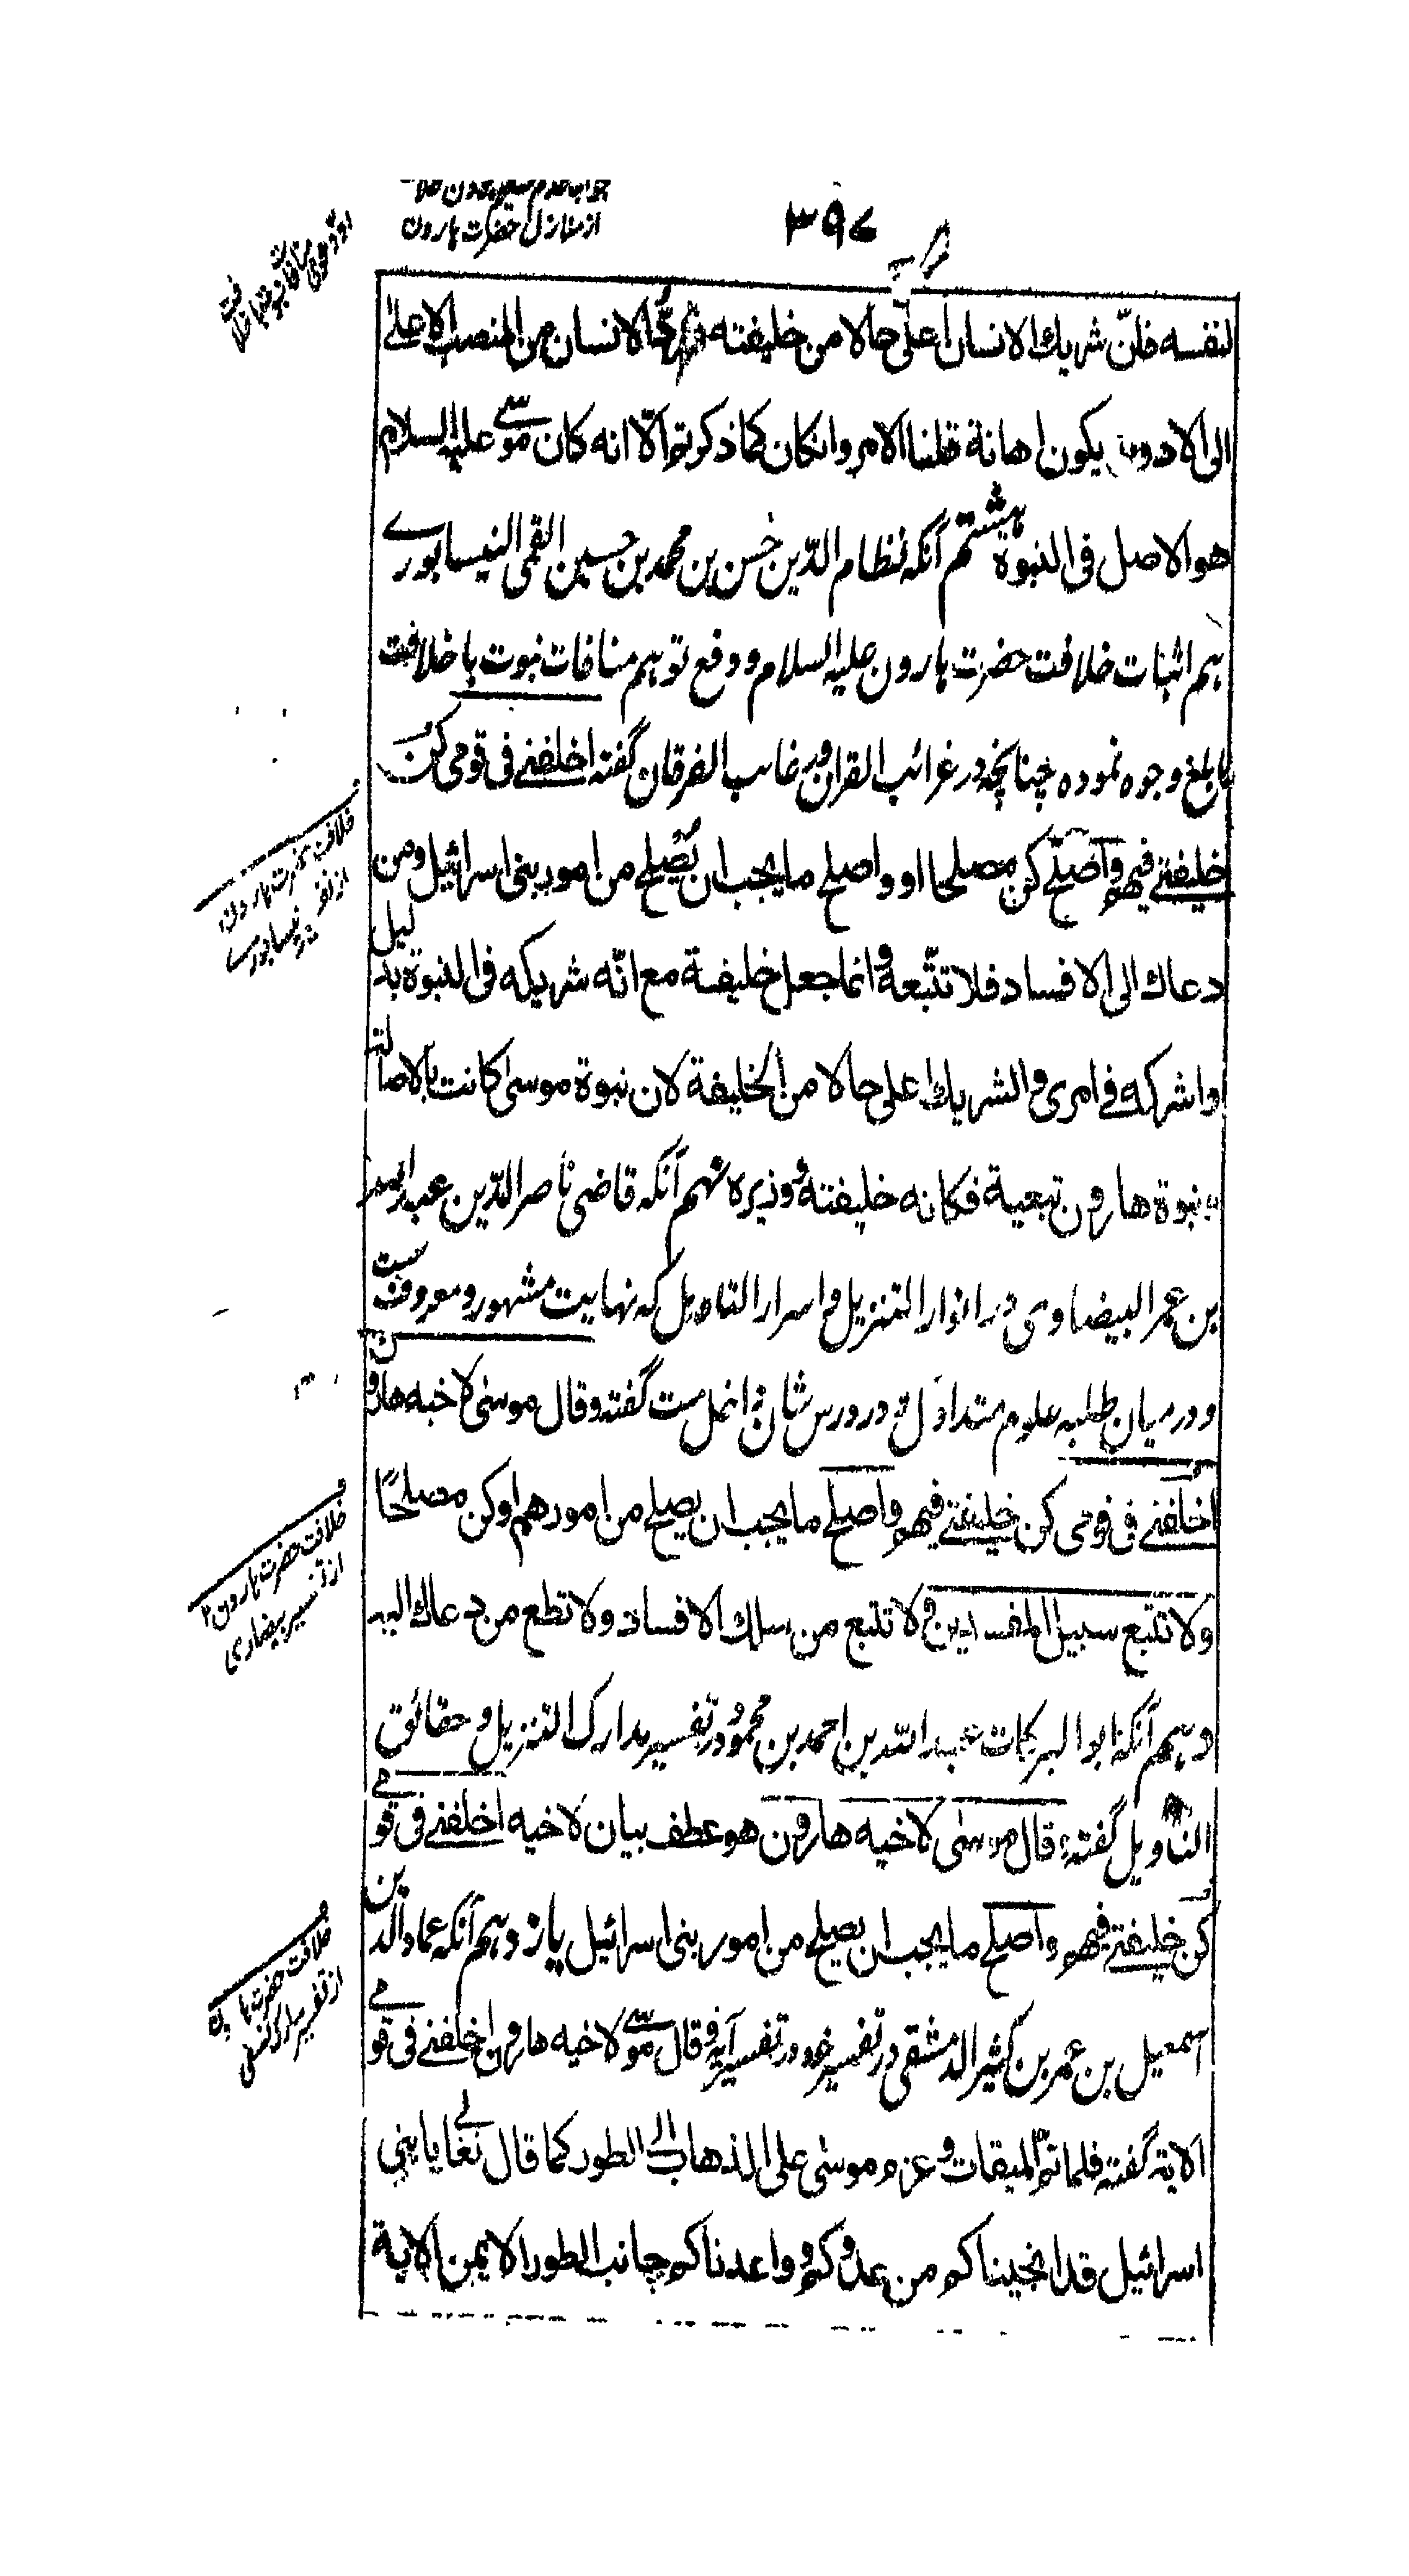 از منازل حضرت هارون
۳۹۷
لنفسه فانّ شريك الانسان اعلى حالا من خليفته و ردّ الانسان من المنصب الاعلى
الى الادون يكون اهانة قلنا الامر وانكان كما ذكرتم الّا انه كان موسى عليه السلام
هو الاصل فى النبوة هشتم آنكه نظام الدّين حسن بن محمد بن حسين القمى النيسابورے
هم اثبات خلافت حضرت هارون عليه السلام و دفع توهم منافات نبوت با خلافت
بابلغ وجوه نموده چنانچه در غرائب القران و رغائب الفرقان گفته اخلفنے فى قومى كن
خليفتے فيهم واصلح كن مصلحا او واصلح ما يجب ان يصلح من امور بنى اسرائيل ومن
دعاك الى الافساد فلا تتّبعه وانما جعل خليفة مع انّه شريكه فى النبوة بدليل
واشركه فے امرى والشريك اعلى حالا من الخليفة لان نبوة موسى كانت بالاصالة
و نبوة هارون تبعية فكانه خليفته و وزيره نهم آنكه قاضى ناصر الدّين عبد الله
بن عمر البيضاوى در انوار التنزيل و اسرار التاويل كه نهايت مشهور و معروفست
و در ميان طلبه علوم متداول و در درس شان داخل ست گفته و قال موسى لاخيه هارون
اخلفنے فى قومى كن خليفتے فيهم واصلح ما يجب ان يصلح من امورهم او كن مصلحًا
ولا تتبع سبيل المفسدين ولا تتبع من سلك الافساد ولا تطع من دعاك اليه
دهم آنكه ابو البركات عبد الله بن احمد بن محمود در تفسير مدارك التنزيل و حقائق
التاويل گفته و قال موسى لاخيه هارون هو عطف بيان لاخيه اخلفنے فى قومے
كن خليفتے فيهم واصلح ما يجب ان يصلح من امور بنى اسرائيل يازدهم آنكه عماد الدين
اسمعيل بن عمر بن كثير الدمشقى در تفسير خود در تفسير آيه و قال موسى لاخيه هارون اخلفنے فى قومے
الاية گفته فلما تمّ الميقات و عزم موسى على الذهاب الى الطور كما قال تعالى يا بنى
اسرائيل قد انجيناكم من عدوكم و واعدناكم جانب الطور الايمن الاية
خلافت حضرت هارون
از تفسير نيسابورے
خلافت حضرت هارون
از تفسير بيضاوى
خلافت حضرت هارون
از تفسير مدارك نسفى